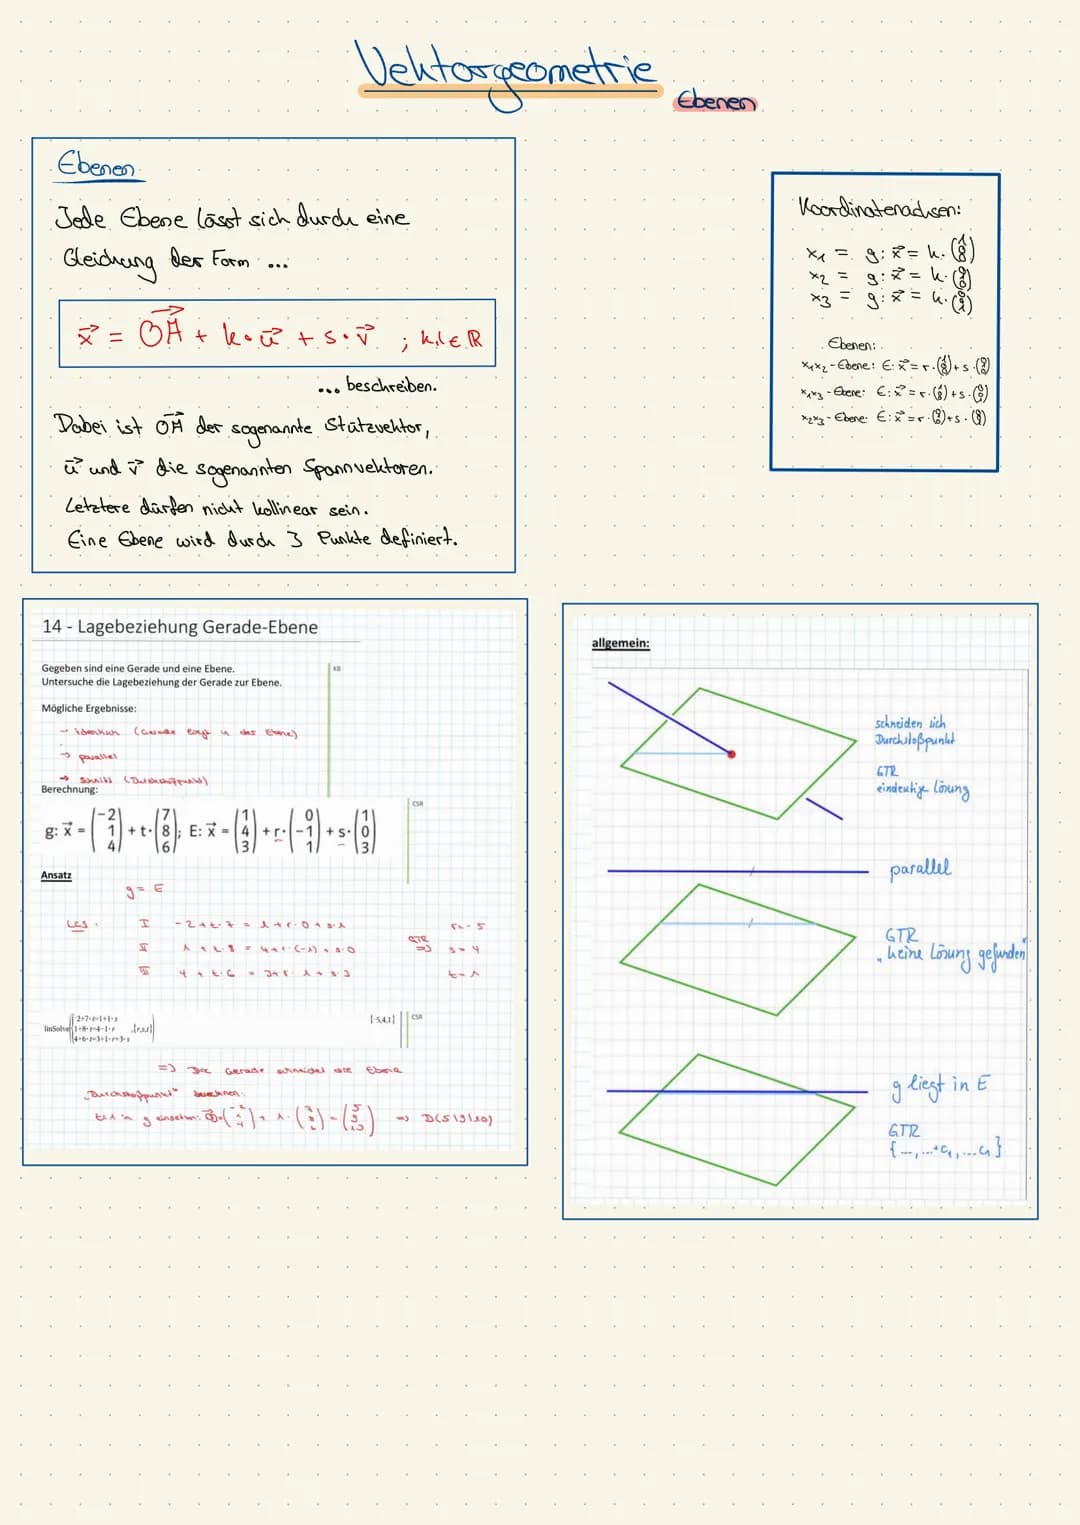 Vektorgeometrie
Ebenen
Ebenen
Jede Ebene lässt sich durch eine
Gleichung der Form ...
x⃗ = OA⃗ + k·u⃗ + s·v⃗ ; k,l ∈ ℝ
... beschreiben.
Dabei ist OA⃗ der sogenannte Stützvektor,
u⃗ und v⃗ die sogenannten Spannvektoren.
Letztere dürfen nicht kollinear sein.
Eine Ebene wird durch 3 Punkte definiert.
Koordinatenachsen:
x₁ = g: x⃗ = k· (1 0 0)
x₂ = g: x⃗ = k· (0 1 0)
x₃ = g: x⃗ = k· (0 0 1)
Ebenen:
x₁x₂-Ebene: E: x⃗ = r· (1 0 0) + s· (0 1 0)
x₁x₃-Ebene: E: x⃗ = r· (1 0 0) + s·
x₂x₃-Ebene: E: x⃗ = r· + s·
14 - Lagebeziehung Gerade-Ebene
Gegeben sind eine Gerade und eine Ebene.
Untersuche die Lagebeziehung der Gerade zur Ebene.
KB
Mögliche Ergebnisse:
→ identisch (Gerade liegt in der Ebene)
→ parallel
→ Schnitt (Durchstoßpunkt)
Berechnung:
CSR
g: x⃗ = (-2 1 4) + t· (7 8 6); E: x⃗ = (1 4 3) + r· (0 -1 1) + s· (1 0 3)
Ansatz
g = E
LGS: I -2 + t·7 = 1 + r·0 + s·1 r = -5
II 1 + t·8 = 4 + r·(-1) + s·0 GTR ⇒ s = 4
III 4 + t·6 = 3 + r·1 + s·3 t = 1
linSolve({-2+7·t=1+1·s 1+8·t=4-1·r 4+6·t=3+1·r+3·s ,{r,s,t}) {-5,4,1}
CSR
=> Die Gerade schneidet die Ebene
"Durchstoßpunkt" berechnen:
t=1 in g einsetzen: (-2 1 4) + 1· (7 8 6) = (5 9 10) => D(5|9|10)
allgemein:
schneiden sich
Durchstoßpunkt
GTR
eindeutige Lösung
parallel
GTR
„keine Lösung gefunden"
g liegt in E
GTR
{ ..., ...+c₁, ...c₁ }